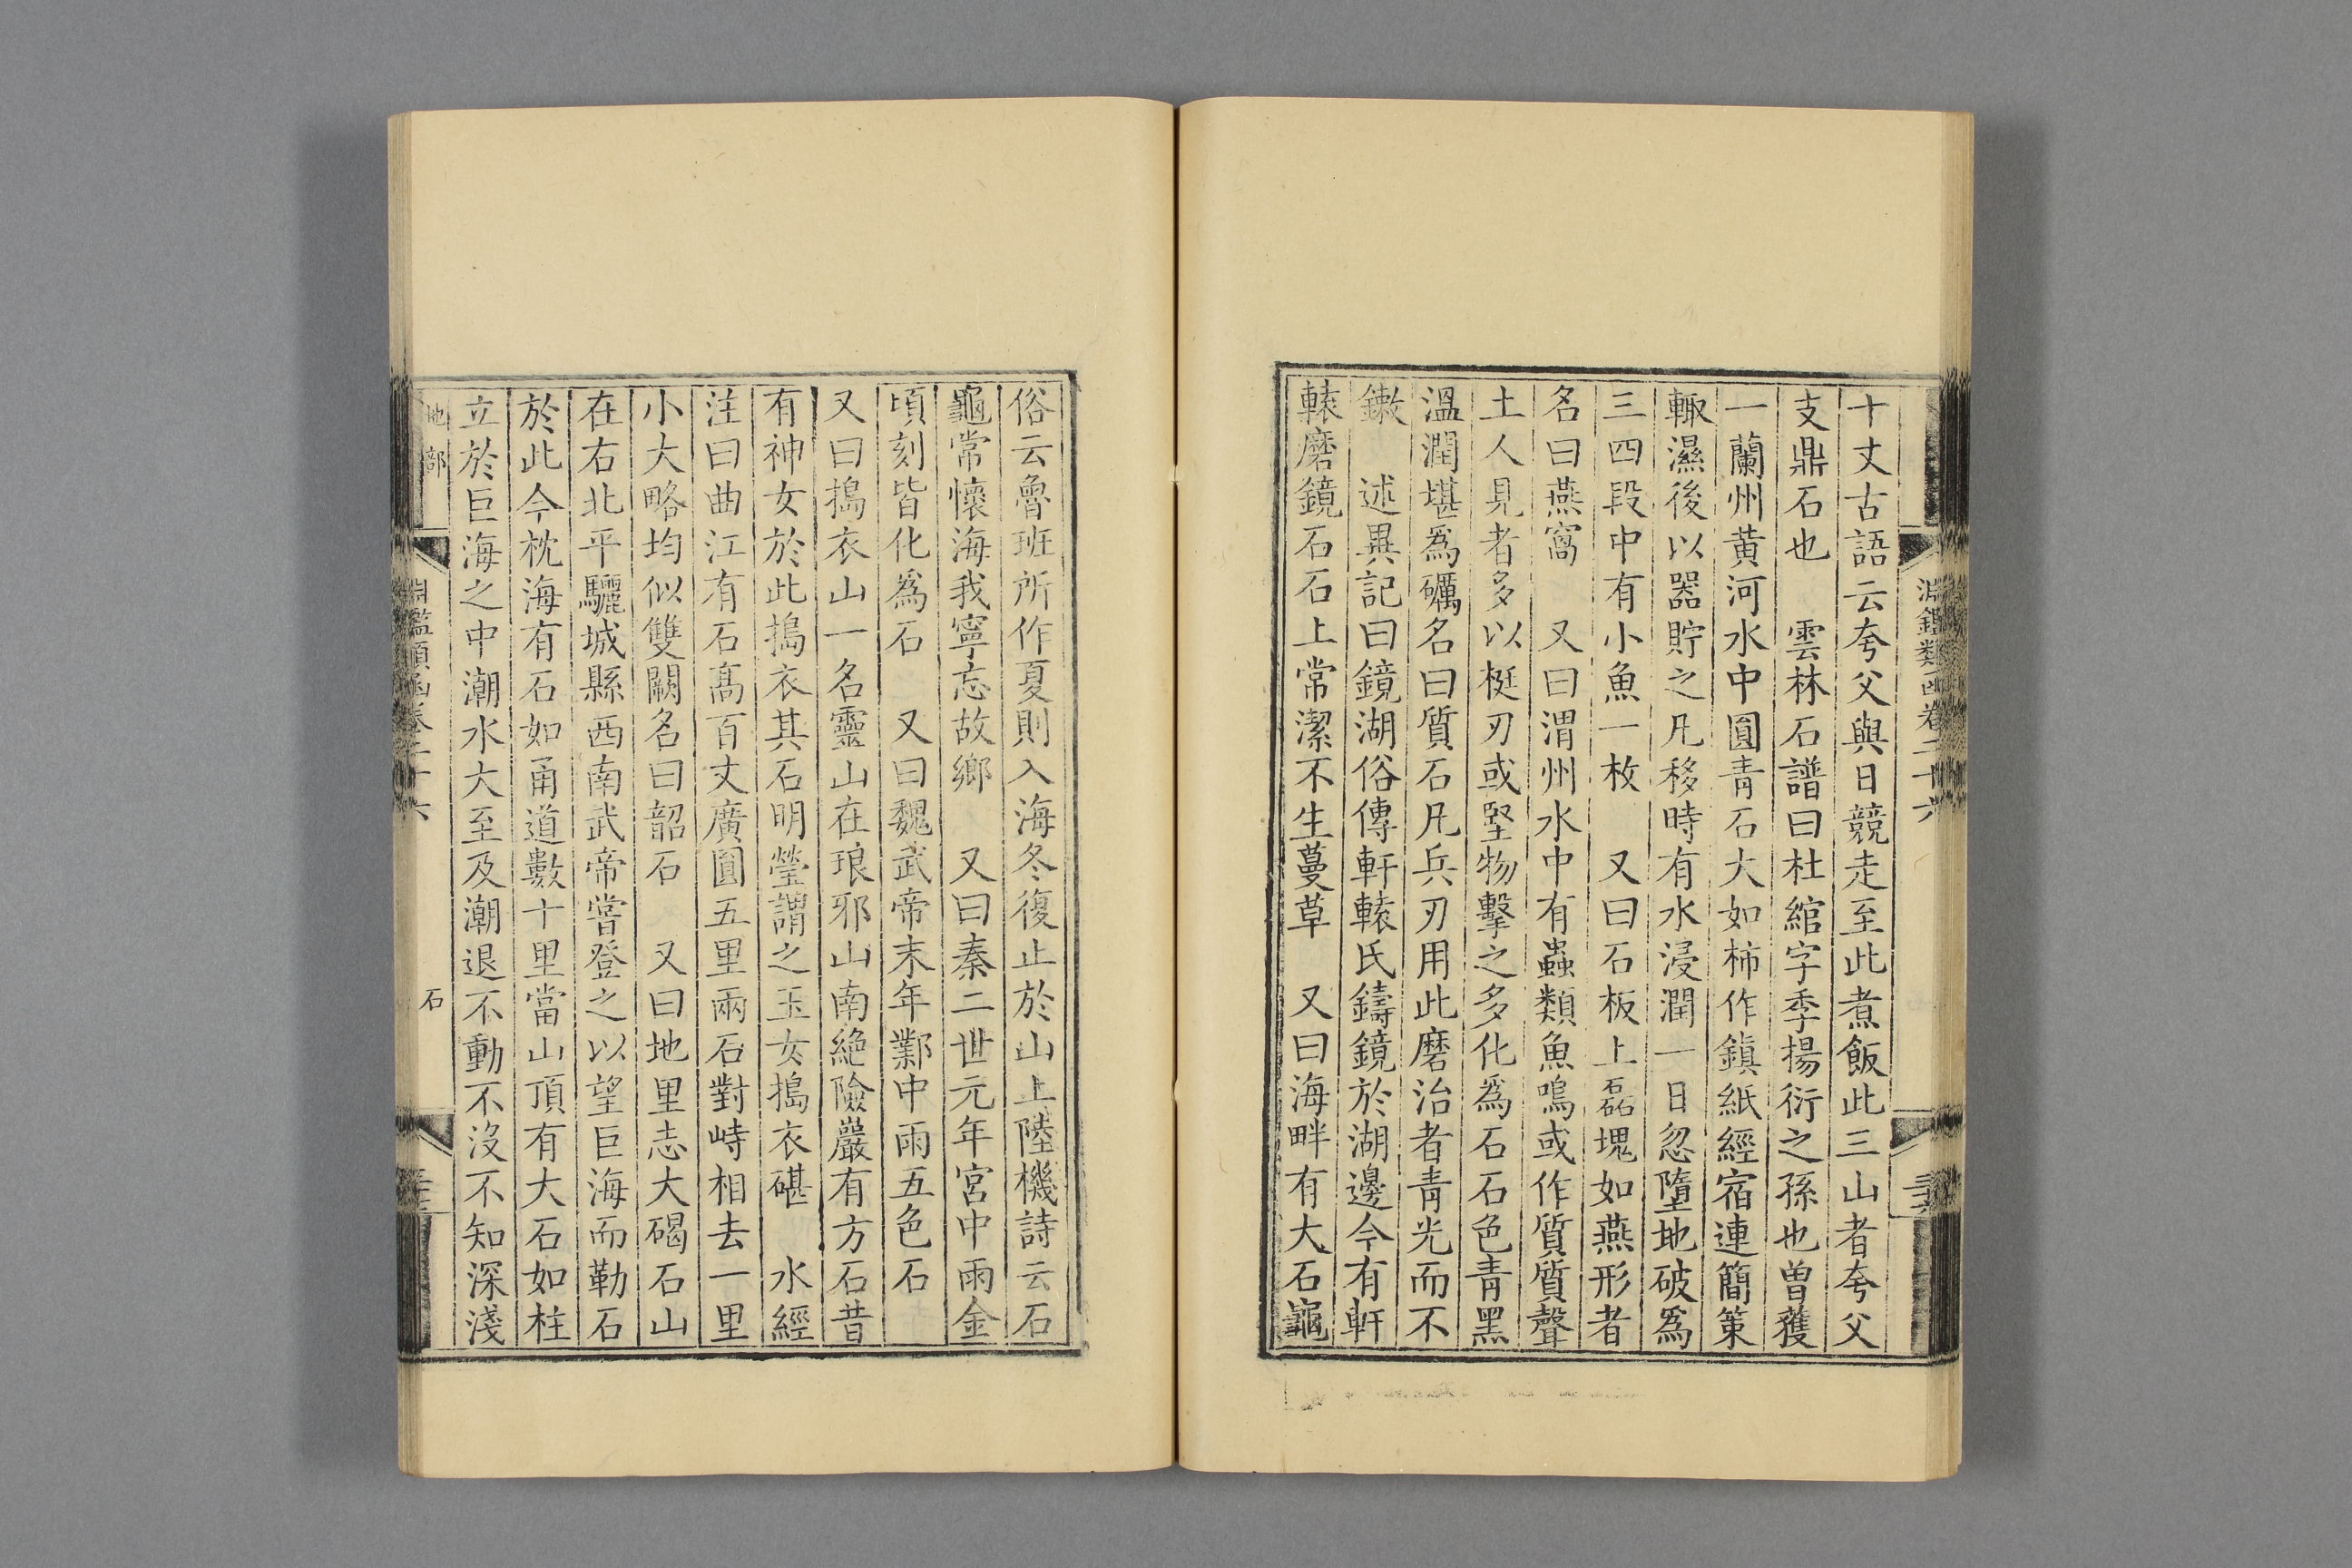 淵鑑類函卷二十六
十丈古語云夸父與日競走至此煮飯此三山者夸父
支鼎石也　雲林石譜曰杜綰字季揚衍之孫也曾獲
一蘭州黄河水中圓青石大如柿作鎮紙經宿連簡策
輙濕後以器貯之凡移時有水浸潤一日忽墮地破爲
三四段中有小魚一枚　又曰石板上磊塊如燕形者
名曰燕窩　又曰渭州水中有蟲類魚鳴或作質質聲
土人見者多以梃刃或堅物擊之多化爲石石色青黑
溫潤堪爲礪名曰質石凡兵刃用此磨治者青光而不
鏉　述異記曰鏡湖俗傳軒轅氏鑄鏡於湖邊今有軒
轅磨鏡石石上常潔不生蔓草　又曰海畔有大石龜
俗云魯班所作夏則入海冬復止於山上陸機詩云石
龜常懷海我寧忘故鄉　又曰秦二世元年宮中雨金
頃刻皆化爲石　又曰魏武帝末年鄴中雨五色石
又曰搗衣山一名靈山在琅邪山南絶險嚴有方石昔
有神女於此搗衣其石明瑩謂之玉女搗衣碪　水經
注曰曲江有石髙百丈廣圓五里兩石對峙相去一里
小大略均似雙闕名曰韶石　又曰地里志大碣石山
在右北平驪城縣西南武帝嘗登之以望巨海而勒石
於此今枕海有石如甬道數十里當山頂有大石如柱
立於巨海之中潮水大至及潮退不動不沒不知深淺
地部　淵鑑類函卷二十六　石